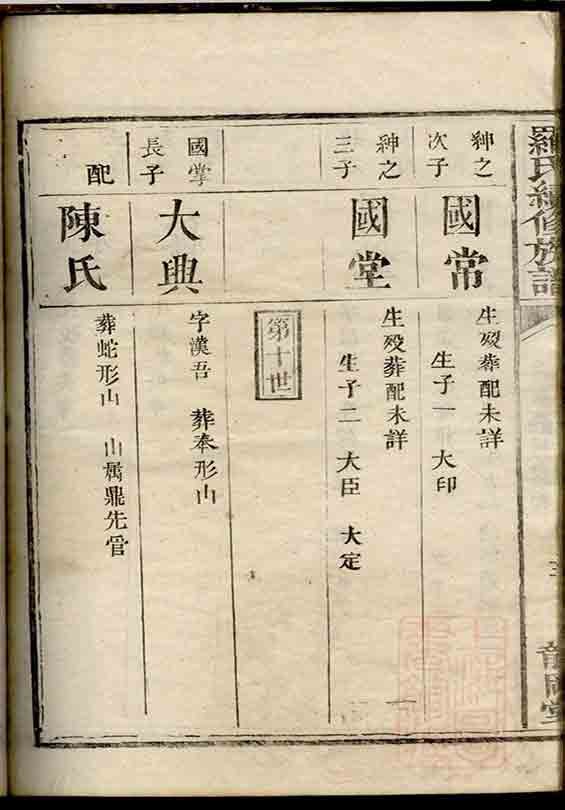 羅氏續修族譜
紳之
次子
國常
生歿葬配未詳
生子一 大印
紳之
三子
國堂
生歿葬配未詳
生子二 大臣 大定
第十世
國掌
長子
大興
字漢吾 葬奉形山
配
陳氏
葬蛇形山 山屬鼎先管